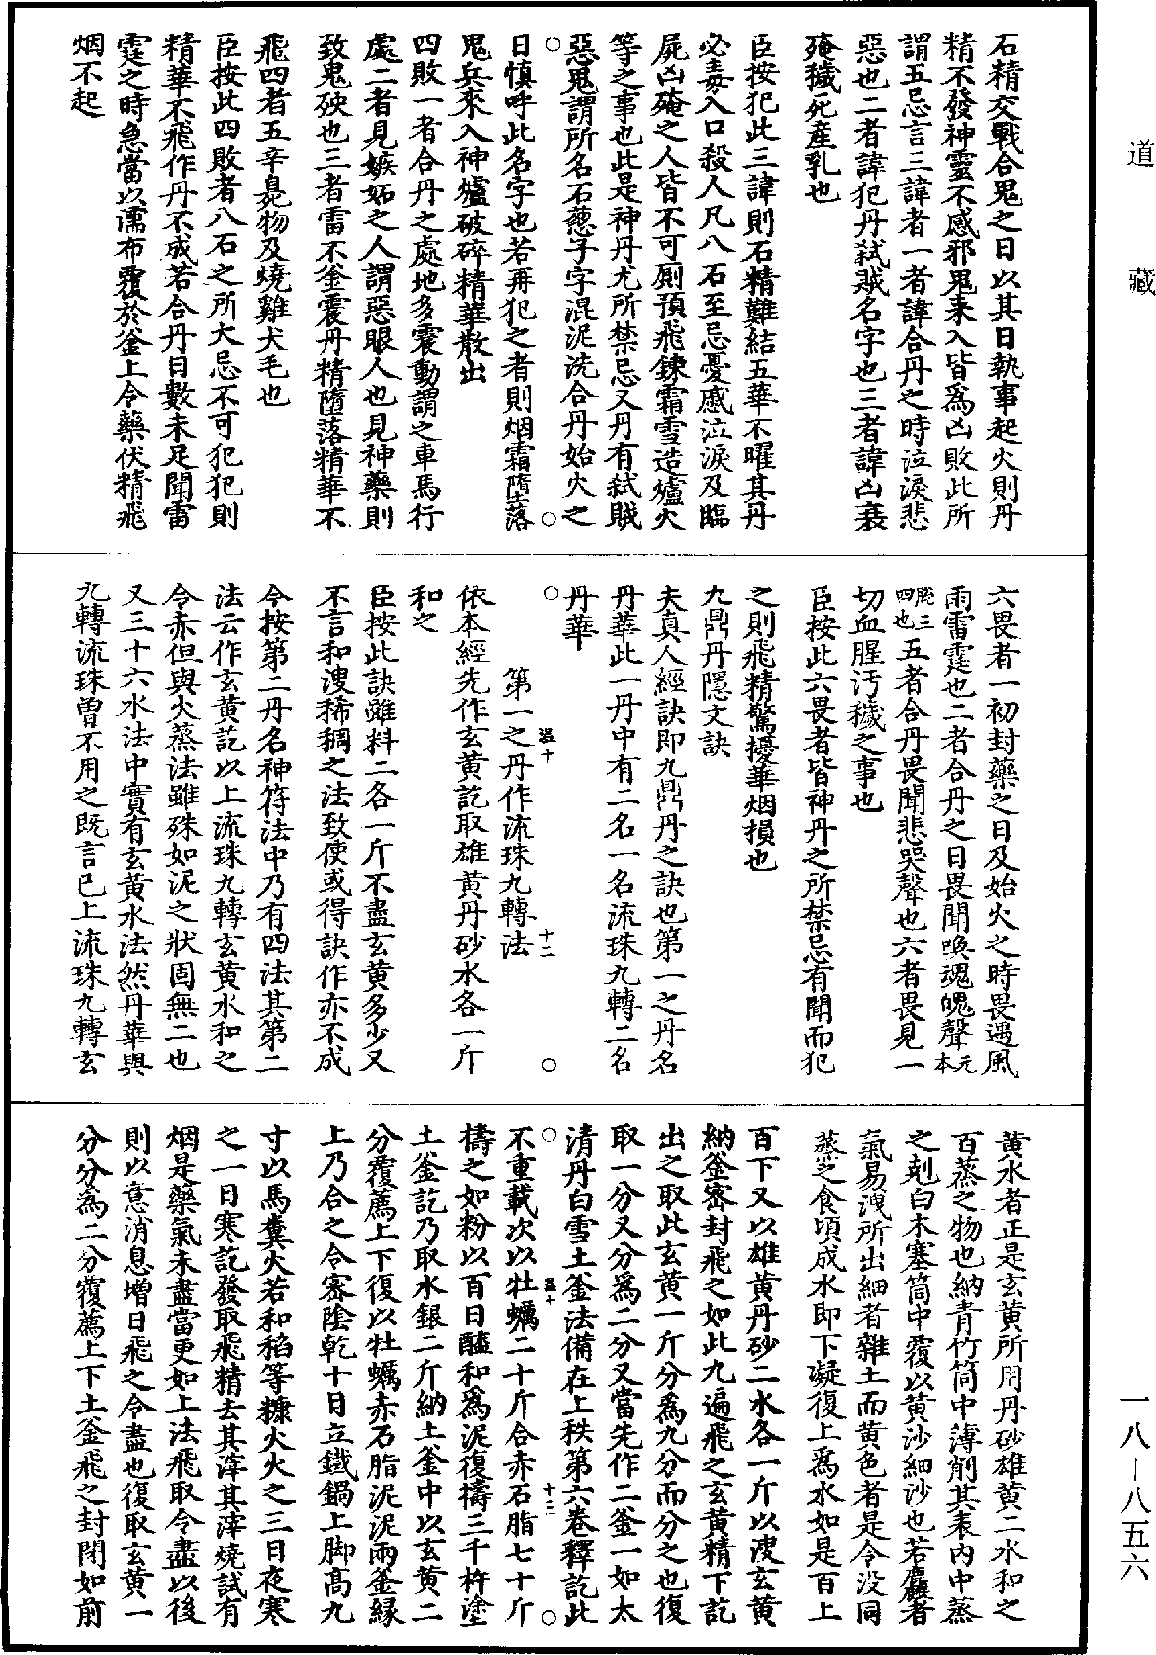 道藏
石精交戰合鬼之日以其日執事起火則丹
精不發神靈不感邪鬼來入皆爲凶敗此所
謂五忌言三諱者一者諱合丹之時泣淚悲
惡也二者諱犯丹弒賊名字也三者諱凶衰
殗穢死產乳也
臣按犯此三諱則石精難結五華不曜其丹
必毒入口殺人凡八石至忌憂慼泣淚及臨
屍凶殗之人皆不可厠預飛鍊霜雪造爐火
等之事也此是神丹尤所禁忌又丹有弒賊
惡鬼謂所名石蔥子字混泥洗合丹始火之
日慎呼此名字也若再犯之者則烟霜墮落
鬼兵來入神爐破碎精華散出
四敗一者合丹之處地多震動謂之車馬行
處二者見嫉妬之人謂惡眼人也見神藥則
致鬼殃也三者雷不釜震丹精墮落精華不
飛四者五辛臭物及燒雞犬毛也
臣按此四敗者八石之所大忌不可犯犯則
精華不飛作丹不成若合丹日數未足聞雷
霆之時急當以濡布覆於釜上令藥伏精飛
烟不起
六畏者一初封藥之日及始火之時畏遇風
雨雷霆也二者合丹之日畏聞喚魂魄聲元本
脫三四也五者合丹畏聞悲哭聲也六者畏見一
切血腥汙穢之事也
臣按此六畏者皆神丹之所禁忌有聞而犯
之則飛精驚擾華烟損也
九鼎丹隱文訣
夫真人經訣即九鼎丹之訣也第一之丹名
丹華此一丹中有二名一名流珠九轉二名
丹華
第一之丹作流珠九轉法
依本經先作玄黃訖取雄黃丹砂水各一斤
和之
臣按此訣雖料二各一斤不盡玄黃多少又
不言和溲稀稠之法致使或得訣作亦不成
今按第二丹名神符法中乃有四法其第二
法云作玄黃訖以上流珠九轉玄黃水和之
令赤但與火蒸法雖殊如泥之狀固無二也
又三十六水法中實有玄黃水法然丹華與
九轉流珠曾不用之既言已上流珠九轉玄
黃水者正是玄黃所用丹砂雄黃二水和之
百蒸之物也納青竹筒中薄削其表內中蒸
之剋白木塞筒中覆以黃沙細沙也若麤者
氣易洩所出細者雜土而黃色者是令没同
蒸之食頃成水即下凝復上爲水如是百上
百下又以雄黃丹砂二水各一斤以溲玄黃
納釜密封飛之如此九遍飛之玄黃精下訖
出之取此玄黃一斤分爲九分而分之也復
取一分又分爲二分又當先作二釜一如太
清丹白雪土釜法備在上秩第六卷釋訖此
不重載次以牡蠣二十斤合赤石脂七十斤
擣之如粉以百日醯和爲泥復擣三千杵塗
土釜訖乃取水銀二斤納土釜中以玄黃二
分覆薦上下復以牡蠣赤石脂泥泥兩釜緣
上乃合之令密陰乾十日立鐵鍋上脚高九
寸以馬糞火若和稻等糠火火之三日夜寒
之一日寒訖發取飛精去其滓其滓燒試有
烟是藥氣未盡當更如上法飛取令盡以後
則以意消息增日飛之令盡也復取玄黃一
分分爲二分覆薦上下土釜飛之封閉如前
溫十
十二
溫十
十二
一八—八五六